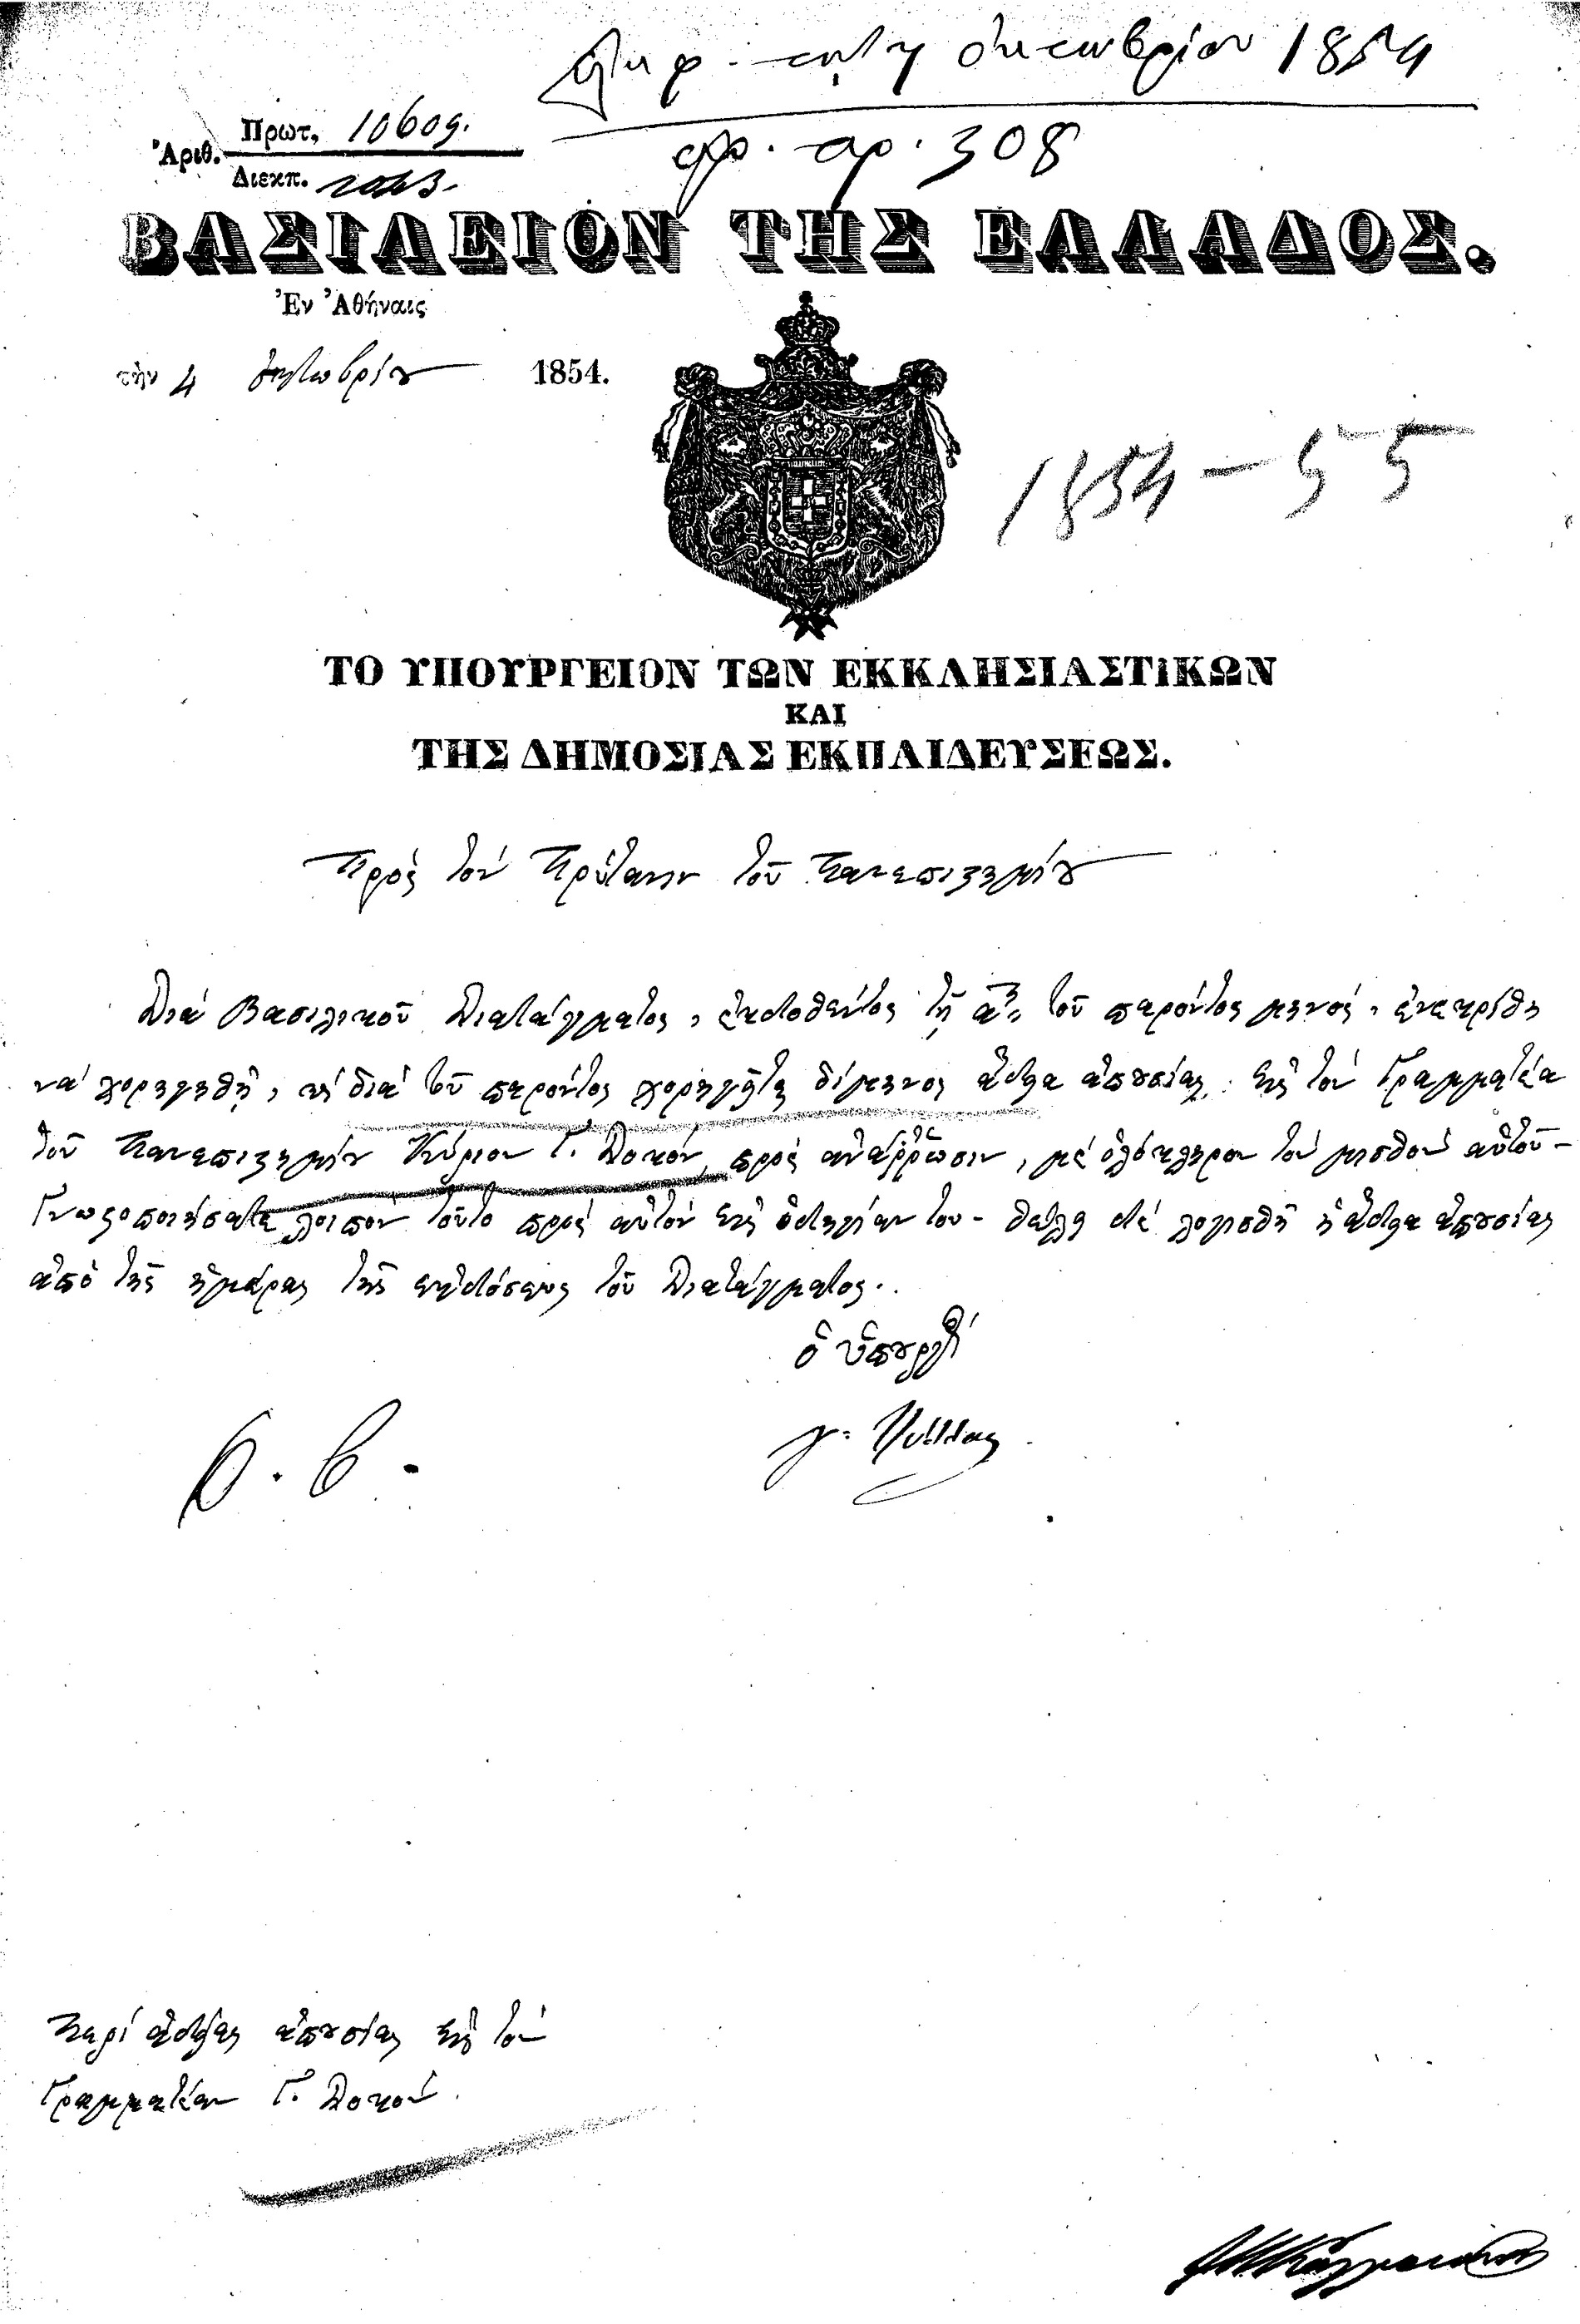 ὀκτωβρίου 1854
ἀρ. 308
Ἀριθ. Πρωτ. 10609.
Διεκπ.
ΒΑΣΙΛΕΙΟΝ ΤΗΣ ΕΛΛΑΔΟΣ.
Ἐν Ἀθήναις
τὴν 4 Ὀκτωβρίου 1854.
1854-55
ΤΟ ΥΠΟΥΡΓΕΙΟΝ ΤΩΝ ΕΚΚΛΗΣΙΑΣΤΙΚΩΝ
ΚΑΙ
ΤΗΣ ΔΗΜΟΣΙΑΣ ΕΚΠΑΙΔΕΥΣΕΩΣ.
Πρὸς τὸν Πρύτανιν τοῦ Πανεπιστημίου
Διὰ Βασιλικοῦ Διατάγματος, ἐκδοθέντος τῇ αῃ τοῦ παρόντος μηνός, ἐνεκρίθη
νὰ χορηγηθῇ, καὶ διὰ τοῦ παρόντος χορηγεῖται δίμηνος ἄδεια ἀπουσίας εἰς τὸν Γραμματέα
τοῦ Πανεπιστημίου Κύριον Γ. Δοκόν, πρὸς ἀνάῤῥωσιν, μὲ ὁλόκληρον τὸν μισθὸν αὐτοῦ-
Γνωστοποιήσατε λοιπὸν τοῦτο πρὸς αὐτὸν εἰς ὁδηγίαν του- θέλει δὲ λογισθῆ ἡ ἄδεια ἀπουσίας
ἀπὸ τῆς ἡμέρας τῆς ἐκδόσεως τοῦ Διατάγματος.
ὁ ὑπουργὸς
Γ. Ψύλλας
Περὶ ἀδείας ἀπουσίας εἰς τὸν
Γραμματέαν Γ. Δοκόν.